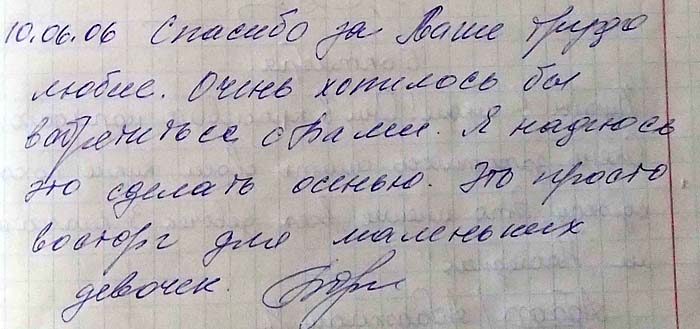 10.06.06 Спасибо за Ваше трудо
любие. Очень хотилось бы
встретиться с Вами. Я надеюсь
это сделать осенью. Это просто
восторг для маленьких
девочек.